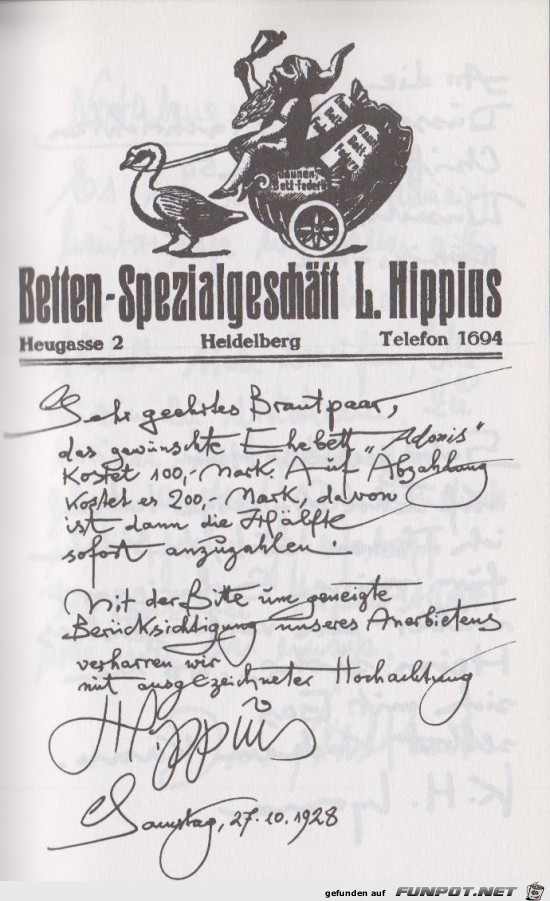 Daunen
Bett-federn
Betten-Spezialgeschäft L. Hippius
Heugasse 2 Heidelberg Telefon 1694
Sehr geehrtes Brautpaar,
das gewünschte Ehebett „Adonis"
kostet 100,- Mark. Auf Abzahlung
kostet es 200,- Mark, davon
ist dann die Hälfte
sofort anzuzahlen.
Mit der Bitte um geneigte
Berücksichtigung unseres Anerbietens
verharren wir
mit ausgezeichneter Hochachtung
Hippius
Samstag, 27.10.1928
gefunden auf FUNPOT.NET